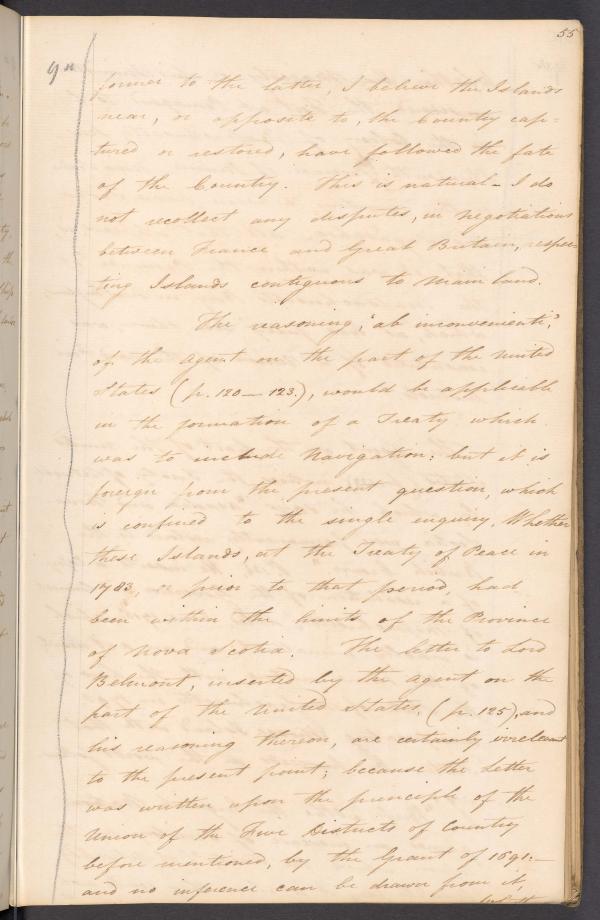 55
9th
former to the latter, I believe the Islands
near, or opposite to, the Country cap=
tured or restored, have followed the fate
of the Country. This is natural - I do
not recollect any disputes, in negotiations
between France and Great Britain, respec
ting Islands contiguous to Main land.
The reasoning, "ab inconvenienti,"
of the agent on the part of the United
States (p. 120 — 123.), would be applicable
in the formation of a Treaty which
was to include Navigation: but it is
foreign from the present question, which
is confined to the single enquiry, Whether
these Islands, at the Treaty of Peace in
1783, or prior to that period, had
been within the limits of the Province
of Nova Scotia. The letter to Lord
Belmont, inserted by the agent on the
part of the United States, (p. 125), and
his reasoning thereon, are certainly irrelevant
to the present point; because the Letter
was written upon the principle of the
Union of the Five Districts of Country
before mentioned, by the Grant of 1691:—
and no inference can be drawn from it,